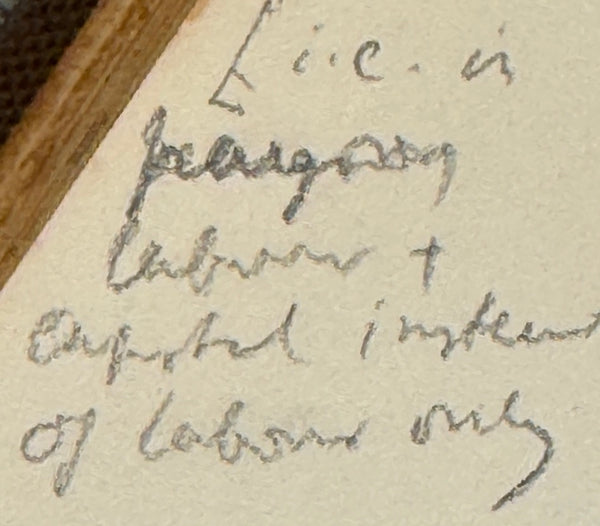 [i.e. in
labour +
capital instead
of labour only